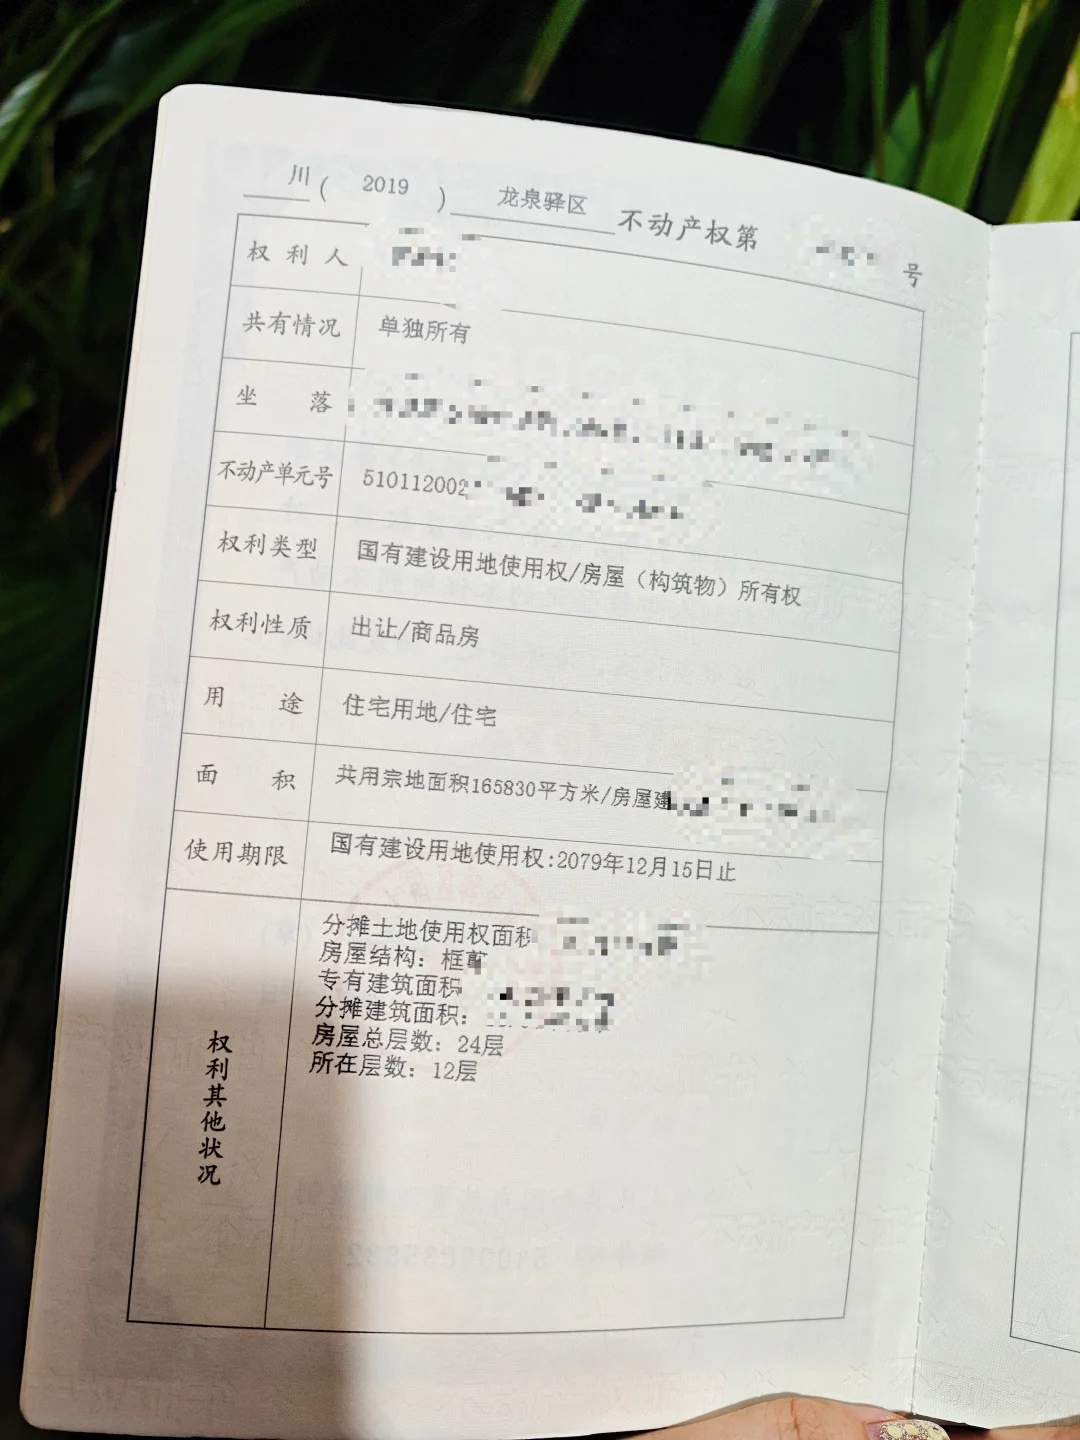 川（2019）龙泉驿区不动产权第 号
权利人
共有情况 单独所有
坐落
不动产单元号 510112002
权利类型 国有建设用地使用权/房屋（构筑物）所有权
权利性质 出让/商品房
用途 住宅用地/住宅
面积 共用宗地面积165830平方米/房屋建
使用期限 国有建设用地使用权:2079年12月15日止
权利其他状况
分摊土地使用权面积
房屋结构：框剪
专有建筑面积
分摊建筑面积：
房屋总层数：24层
所在层数：12层